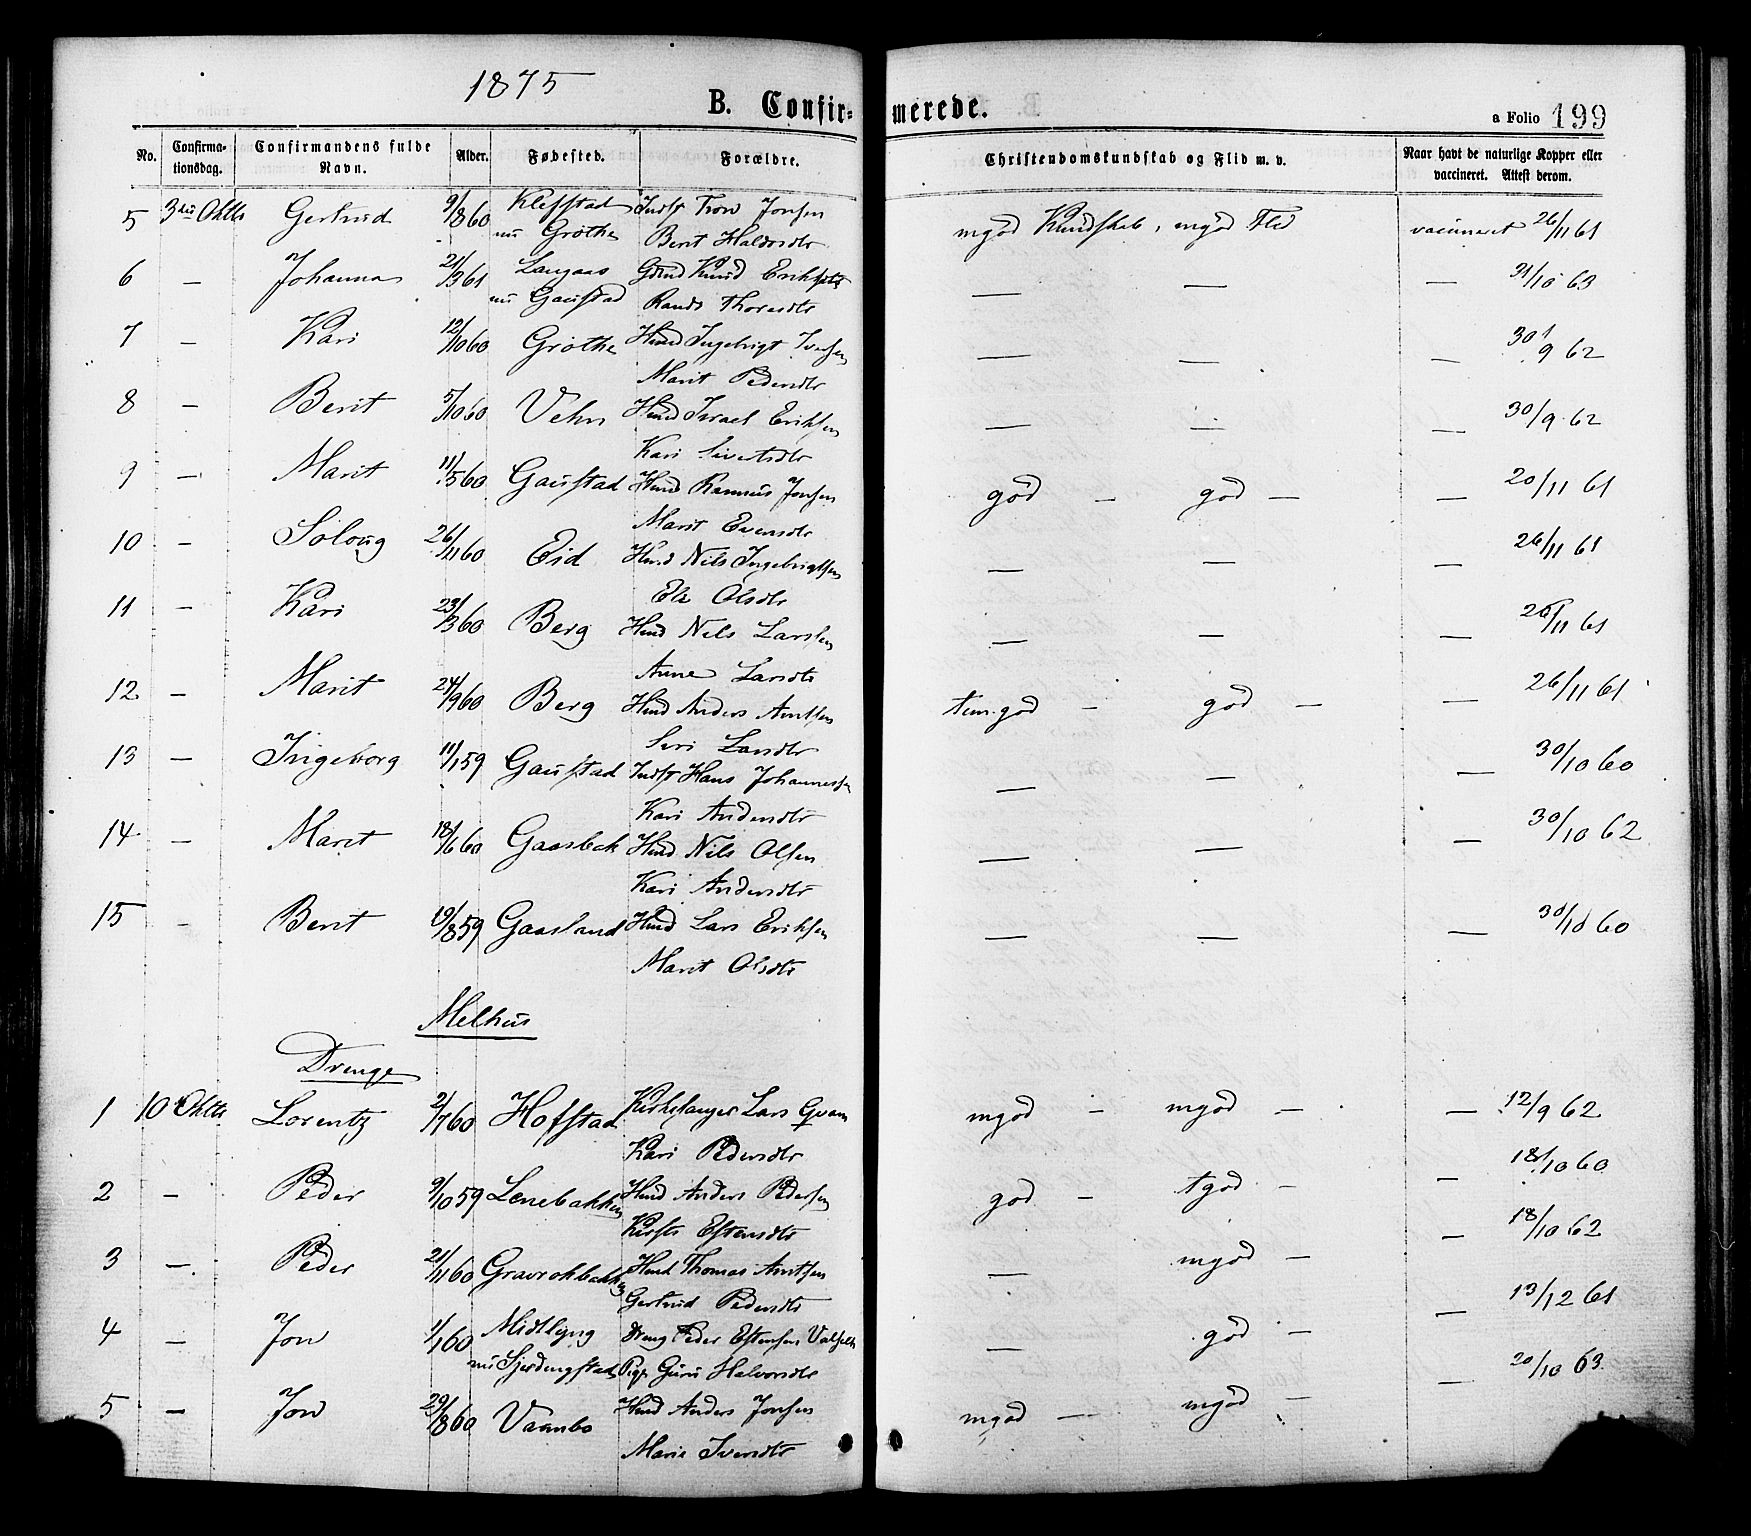 1875
B. Confir=
merede.
a Folio 199
No.
Confirma-
tionsdag.
Confirmandens fulde
Navn.
Alder.
Fødested.
Forældre.
Christendomskundskab og Flid m. v.
Naar havt de naturlige Kopper eller
vaccineret. Attest derom.
5 Gertrud 9/8 60 Klefstad Indst Tron Jonsen mgod Kundskab, mgod Flid vaccineret 26/11 61
nu Grøthe Berit Haldosdtr
6 — Johanna 21/3 61 Langaas Gdmd Knud Eriksen — — — 31/10 63
nu Gaustad Randi Thoresdtr
7 — Kari 12/10 60 Grøthe Hmd Ingebrigt Iversen — — — 30/9 62
Marit Pedersdtr
8 — Berit 5/10 60 Vehn Hmd Israel Eriksen — — — 30/9 62
Kari Sivertsdtr
9 — Marit 11/5 60 Gaustad Hmd Rasmus Jonsen god — god — — 20/11 61
Marit Evensdtr
10 — Soloug 26/11 60 Eid Hmd Nils Ingebrigtsen — — — 26/11 61
Eli Olsdtr
11 — Kari 23/3 60 Berg Hmd Nils Larsen — — — 26/11 61
Anne Larsdtr
12 — Marit 24/9 60 Berg Hmd Anders Arntsen tem. god — god — — 26/11 61
Siri Larsdtr
13 — Ingeborg 11/1 59 Gaustad Indst Hans Johannessen — — — 30/10 60
Kari Andersdtr
14 — Marit 18/6 60 Gaasbak Hmd Nils Olsen — — — 30/10 62
Kari Andersdtr
15 — Berit 19/8 59 Gaasland Hmd Lars Eriksen — — — 30/10 60
Marit Olsdtr
Melhus
Drenge
1 Lorentz 2/7 60 Hofstad Kirkesanger Lars Qvam mgod — mgod — — 12/9 62
Kari Pedersdtr
2 — Peder 9/10 59 Lenebakken Hmd Anders Pedersen god — tgod — — 18/10 60
Kirsti Estensdtr
3 — Peder 21/11 60 Gravrokbakken Hmd Thomas Arntsen — mgod — — 18/10 62
Gertrud Pedersdtr
4 — Jon 1/1 60 Midtlyng Dreng Peder Estensen — god — — 13/12 61
nu Pige Guru Halvorsdtr
5 — Jon 29/8 60 Vaanbo Hmd Anders Jonsen mgod — mgod — — 20/10 63
Marie Iversdtr